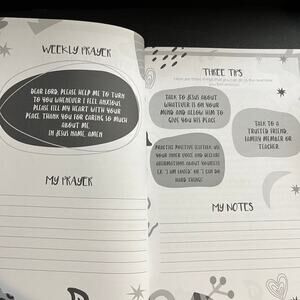 WEEKLY PRAYER
DEAR LORD, PLEASE HELP ME TO TURN
TO YOU WHENEVER I FEEL ANXIOUS.
PLEASE FILL MY HEART WITH YOUR
PEACE. THANK YOU FOR CARING SO MUCH
ABOUT ME.
IN JESUS NAME, AMEN
MY PRAYER
THREE TIPS
Here are three things that you can do the next time
you feel anxious:
TALK TO JESUS ABOUT
WHATEVER IS ON YOUR
MIND AND ALLOW HIM TO
GIVE YOU HIS PEACE
TALK TO A
TRUSTED FRIEND,
FAMILY MEMBER OR
TEACHER.
PRACTISE POSITIVE SELF-TALK. USE
YOUR INNER VOICE AND DECLARE
AFFIRMATIONS ABOUT YOURSELF
I.E. 'I AM LOVED' OR 'I CAN DO
HARD THINGS'
MY NOTES